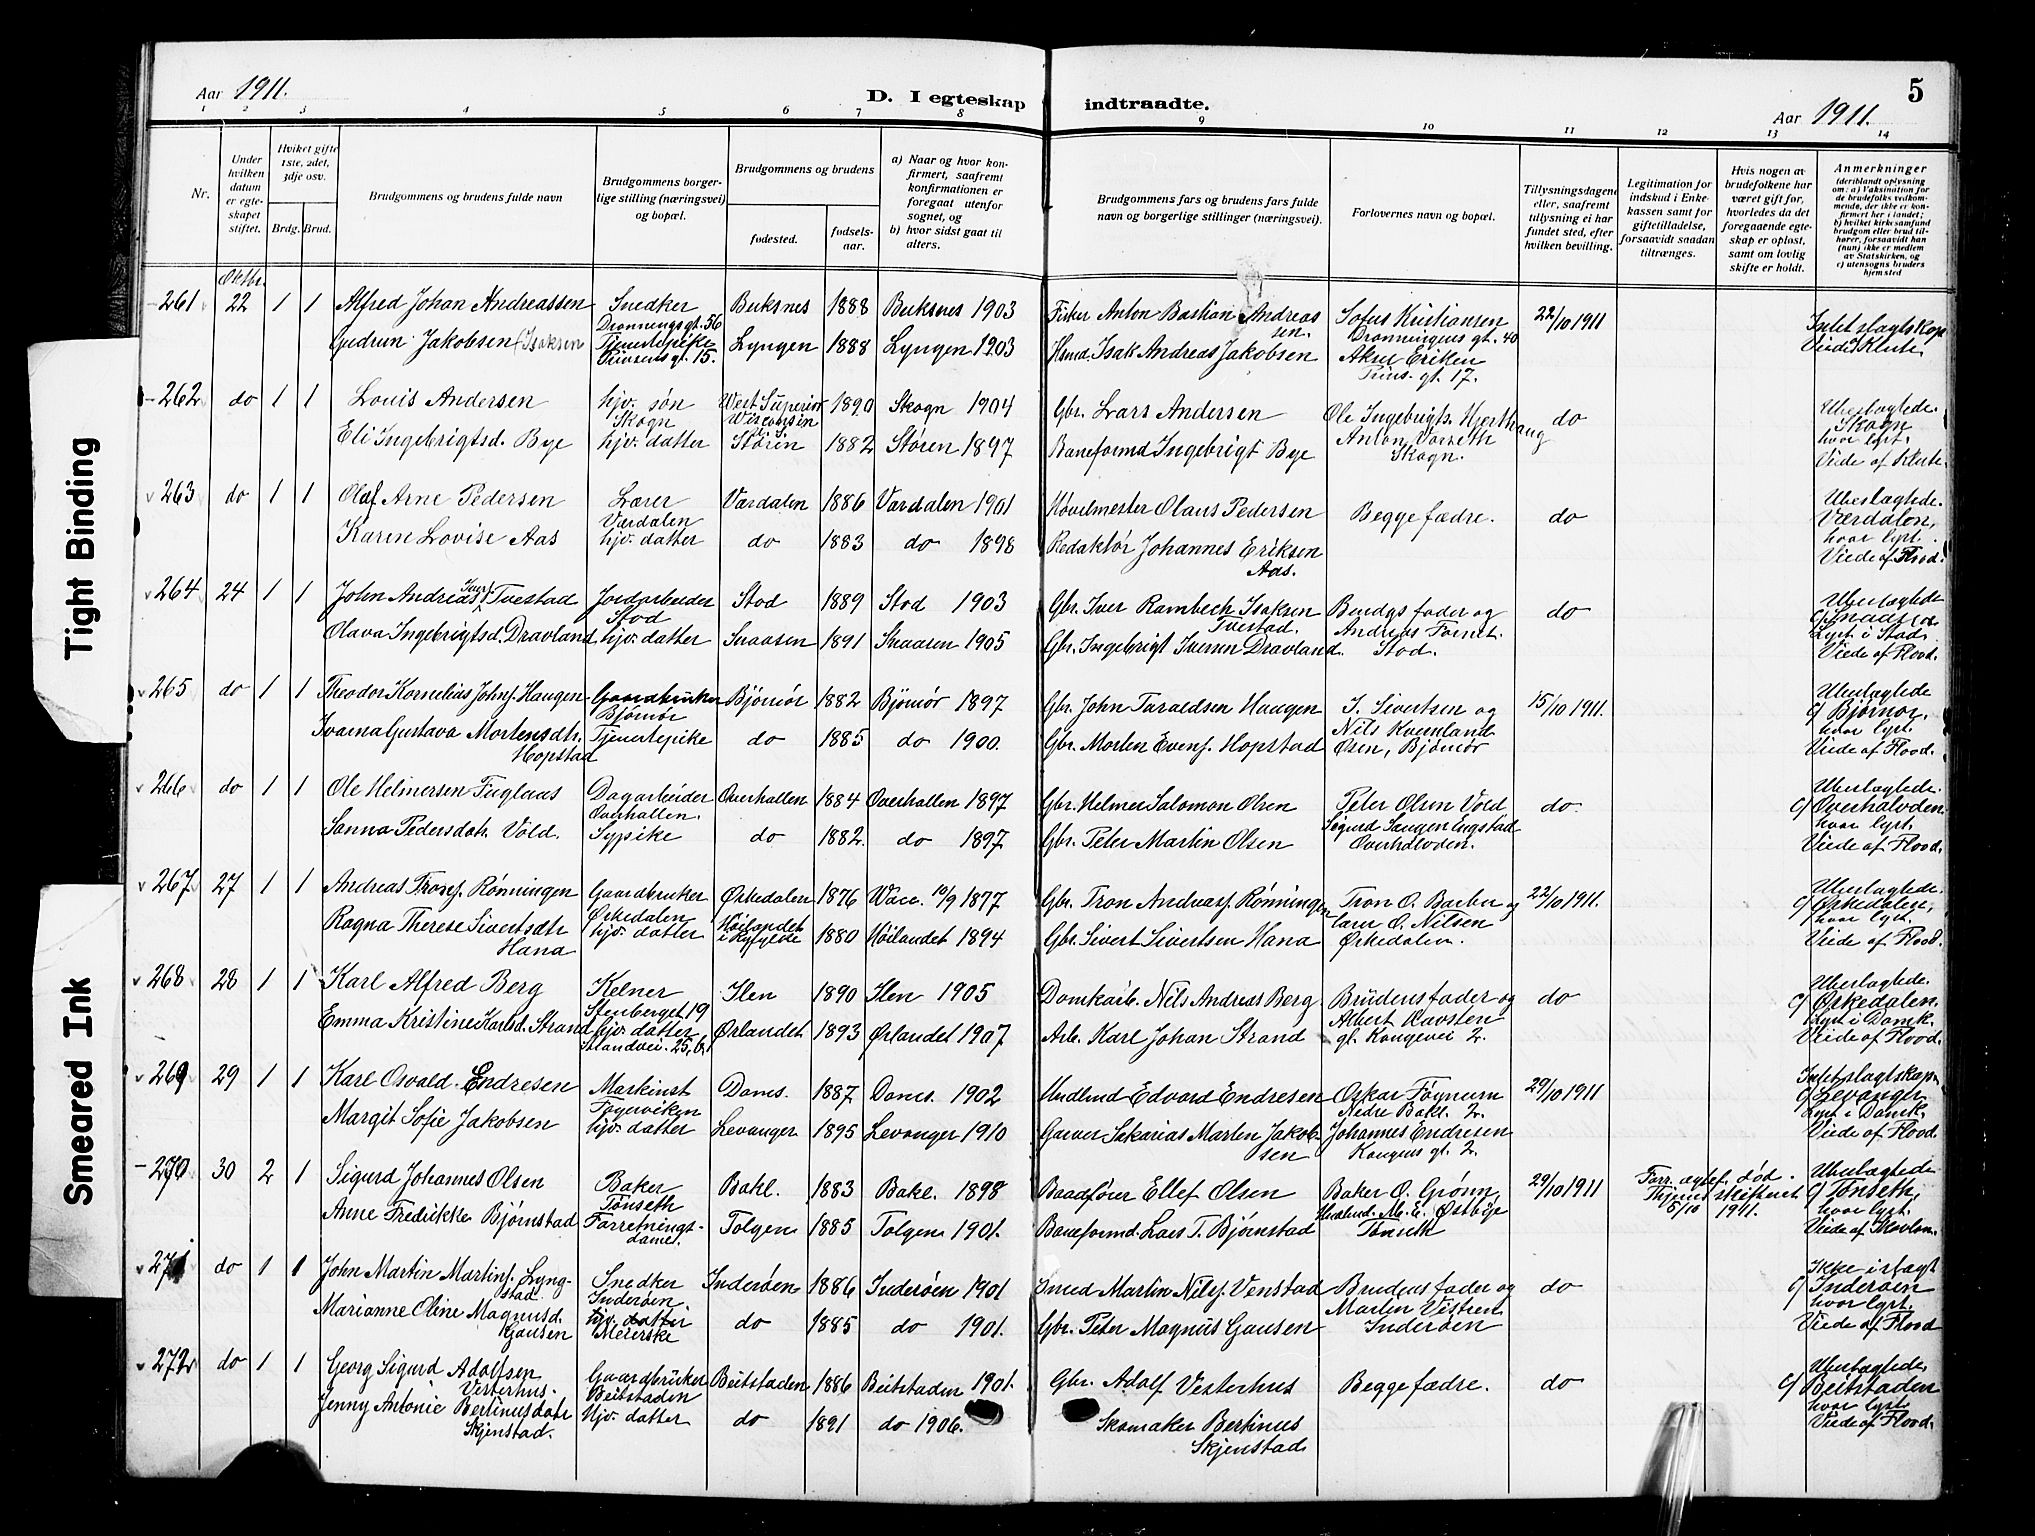 Aar 1911.
D. I egteskap indtraadte.
5
Aar 1911.
1 2 3 4 5 6 7 8 9 10 11 12 13 14
Nr.
Under hvilken datum er egteskapet stiftet.
Hvilket gifte 1ste, 2det, 3dje osv.
Brdg. Brud.
Brudgommens og brudens fulde navn
Brudgommens borgerlige stilling (næringsvei) og bopæl.
Brudgommens og brudens
fødested.
fødselsaar.
a) Naar og hvor konfirmert, saafremt konfirmationen er foregaat utenfor sognet, og
b) hvor sidst gaat til alters.
Brudgommens fars og brudens fars fulde navn og borgerlige stillinger (næringsvei).
Forlovernes navn og bopæl.
Tillysningsdagene eller, saafremt tillysning ei har fundet sted, efter hvilken bevilling.
Legitimation for indskud i Enkekassen samt for giftetilladelse, forsaavidt saadan tiltrænges.
Hvis nogen av brudefolkene har været gift før, hvorledes da det foregaaende egteskap er opløst, samt om lovlig skifte er holdt.
Anmerkninger
(deriblandt oplysning om: a) Vaksination for de brudefolks vedkommende, der ikke er konfirmert her i landet; b) hvilket kirkesamfund brudgom eller brud tilhører, forsaavidt han (hun) ikke er medlem av Statskirken, og c) utensogns bruders hjemsted
Oktbr.
261 22 1 1 Alfred Johan Andreassen Snedker Buksnes 1888 Buksnes 1903 Fisker Anton Bastian Andreassen. Sofus Kristiansen 22/10 1911
Dronningsgt. 56 Dronningens gt. 40
Gudrun Jakobsen (Isaksen Tjenestepike Lyngen 1888 Lyngen 1903 Hsmd. Isak Andreas Jakobsen
Prinsensgt. 15. Prins. gt. 17.
Intet slagtskap
262 do 1 1 Louis Andersen hjv. søn West Superior 1890 Skogn 1904 Gbr. Lars Andersen Ole Ingebrigts. Hjerthaug do Ubeslægtede.
Skogn Wisconsin Skogn
Eli Ingebrigtsd. Bye hjv. datter Støren 1882 Støren 1897 Baneformd Ingebrigt Bye hvor lyst.
Skogn. Viede af Klute.
263 do 1 1 Olaf Arne Pedersen Lærer Værdalen 1886 Værdalen 1901 Høvelmester Olaus Pedersen Begge fædre. do Ubeslægtede.
Værdalen Værdalen,
Karen Lovise Aas hjv. datter do 1883 do 1898 Redaktør Johannes Eriksen hvor lyst.
Aas. Viede af Flood.
264 24 1 1 John Andreas Iver. Tvestad Jordarbeider Stod 1889 Stod 1903 Gbr. Iver Rambech Isaksen Brudgs fader og do Ubeslægtede
Stod Tvestad. Andreas
Olava Ingebrigtsd. Dravland hjv. datter Snaasen 1891 Snaasen 1905 Gbr. Ingebrigt Iversen Dravland. Stod. Lyst i Stod.
Viede af Flood.
265 do 1 1 Theodor Kornelius Johns. Haugen Gaardbruker Bjørnør 1882 Bjørnør 1897 Gbr. John Taraldsen Haugen J. Sivertsen og 15/10 1911. Ubeslægtede
Bjørnør Nils Kvernland Bjørnør.
Ivarna Gustava Mortensdtr. Tjenestepike do 1885 do 1900. Gbr. Morten Evens. Hopstad Osen, Bjørnør hvor lyst.
Hopstad Viede af Flood.
266 do 1 1 Ole Helmersen Fuglaas Dagarbeider Overhallen 1884 Overhallen 1897 Gbr. Helmer Salomon Olsen Peter Olsen Vold do. Ubeslægtede.
Overhallen. Sigurd Saugen Engstad Overhalvden.
Sanna Pedersdatr. Vold. Sypike do 1882. do 1897 Gbr. Peter Martin Olsen Overhalvden. hvor lyst.
Viede af Flood.
267 27 1 1 Andreas Trons. Rønningen Gaardbruker Ørkedalen 1876 Wacc. 10/9 1877 Gbr. Tron Andreas. Rønningen Tron O. og 22/10 1911. Ubeslægtede.
Ørkedalen Høilandet O. Nilsen Ørkedalen,
Ragna Therese Sivertsdtr hjv. datter i Ryfylke 1880 Høilandet 1894 Gbr. Sivert Sivertsen Hana Ørkedalen. hvor lyst.
Hana Viede af Flood.
268 28 1 1 Karl Alfred Berg Kelner Ilen 1890 Ilen 1905 Domkarb. Nils Andreas Berg Brudens fader og do Ubeslægtede.
Stenberget 19 Albert Karsten Ørkedalen.
Emma Kristine Karlsd. Strand hjv. datter Ørlandet 1893 Ørlandet 1907 Arb. Karl Johan Strand gl. Kongevei 2. Lyst i Domk.
Strandvei. 25, Viede af Flood.
269 29 1 1 Karl Osvald Endresen Maskinist Doms. 1887 Doms. 1902 Hndlmd Edvard Endresen Oskar Føynum 29/10 1911 Intet slagtskap
Fagerviken Nedre Bakl. 2. Levanger
Margit Sofie Jakobsen hjv. datter Levanger 1895 Levanger 1910 Garver Sakarias Marten Jakobsen Johannes Endresen Lyst i Domk.
Kongens gt. 2. Viede af Flood
270 30 2 1 Sigurd Johannes Olsen Baker Bakl. 1883 Bakl. 1898 Baadfører Ellef Olsen Baker O. Grønn, 29/10 1911 Forr. ægtef. død. Ubeslægtede
Tönseth Hndlmd. M. E. Østbye skifteret Tönseth,
Anne Fredrikke Bjørnstad Forretnings- Tolgen 1885 Tolgen 1901. Baneformd. Lars T. Bjørnstad Tönseth 5/10 1911. hvor lyst.
dame.
271 do 1 1 John Martin Martins. Lyngstad Snedker Inderøen 1886 Inderøen 1901 Smed Martin Nils. Venstad Brudens fader og do Ikke i slagt
Inderøen. Martin Vistven Inderøen
Marianne Oline Magnusd. hjv. datter do 1885 do 1901. Gbr. Peter Magnus Gausen Inderøen hvor lyst.
Gausen Meierske Viede af Flood
272 do 1 1 Georg Sigurd Adolfsen Gaardbruker Beitstaden 1886 Beitstaden 1901. Gbr. Adolf Vesterhus Begge fædre. do Ubeslægtede.
Vesterhus. Beitstaden Beitstaden
Jenny Antonie Bertinusdatr Hjv. datter do 1891 do 1906. Skomaker Bertinus hvor lyst.
Skjenstad. Skjenstad Viede af Flood.
Tight Binding
Smeared Ink